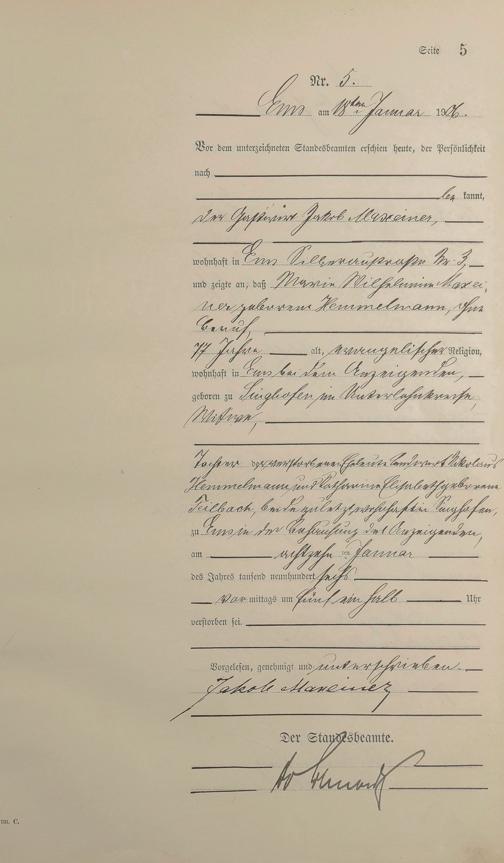 Seite 5
Nr. 5.
Ems am 18ten Januar 1906.
Vor dem unterzeichneten Standesbeamten erschien heute, der Persönlichkeit
nach
be kannt,
der Gastwirt Jakob Maxeiner,
wohnhaft in Ems Silberaustraße Nr. 3,
und zeigte an, daß Marie Wilhelmine Maxei-
ner geborene Hemmelmann, ohne
Beruf,
77 Jahre alt, evangelischer Religion,
wohnhaft in Ems bei dem Anzeigenden,
geboren zu Singhofen im Unterlahnkreise,
Witwe,
Tochter der verstorbenen Eheleute Landwirt Nikolaus
Hemmelmann und Katharine Elisabeth geborene
beide zuletzt wohnhaft in Singhofen,
zu Ems in der Behausung des Anzeigenden,
am achtzehnten Januar
des Jahres tausend neunhundert sechs
vor mittags um fünf ein halb Uhr
verstorben sei.
Vorgelesen, genehmigt und unterschrieben
Jakob Maxeiner
Der Standesbeamte.
C.